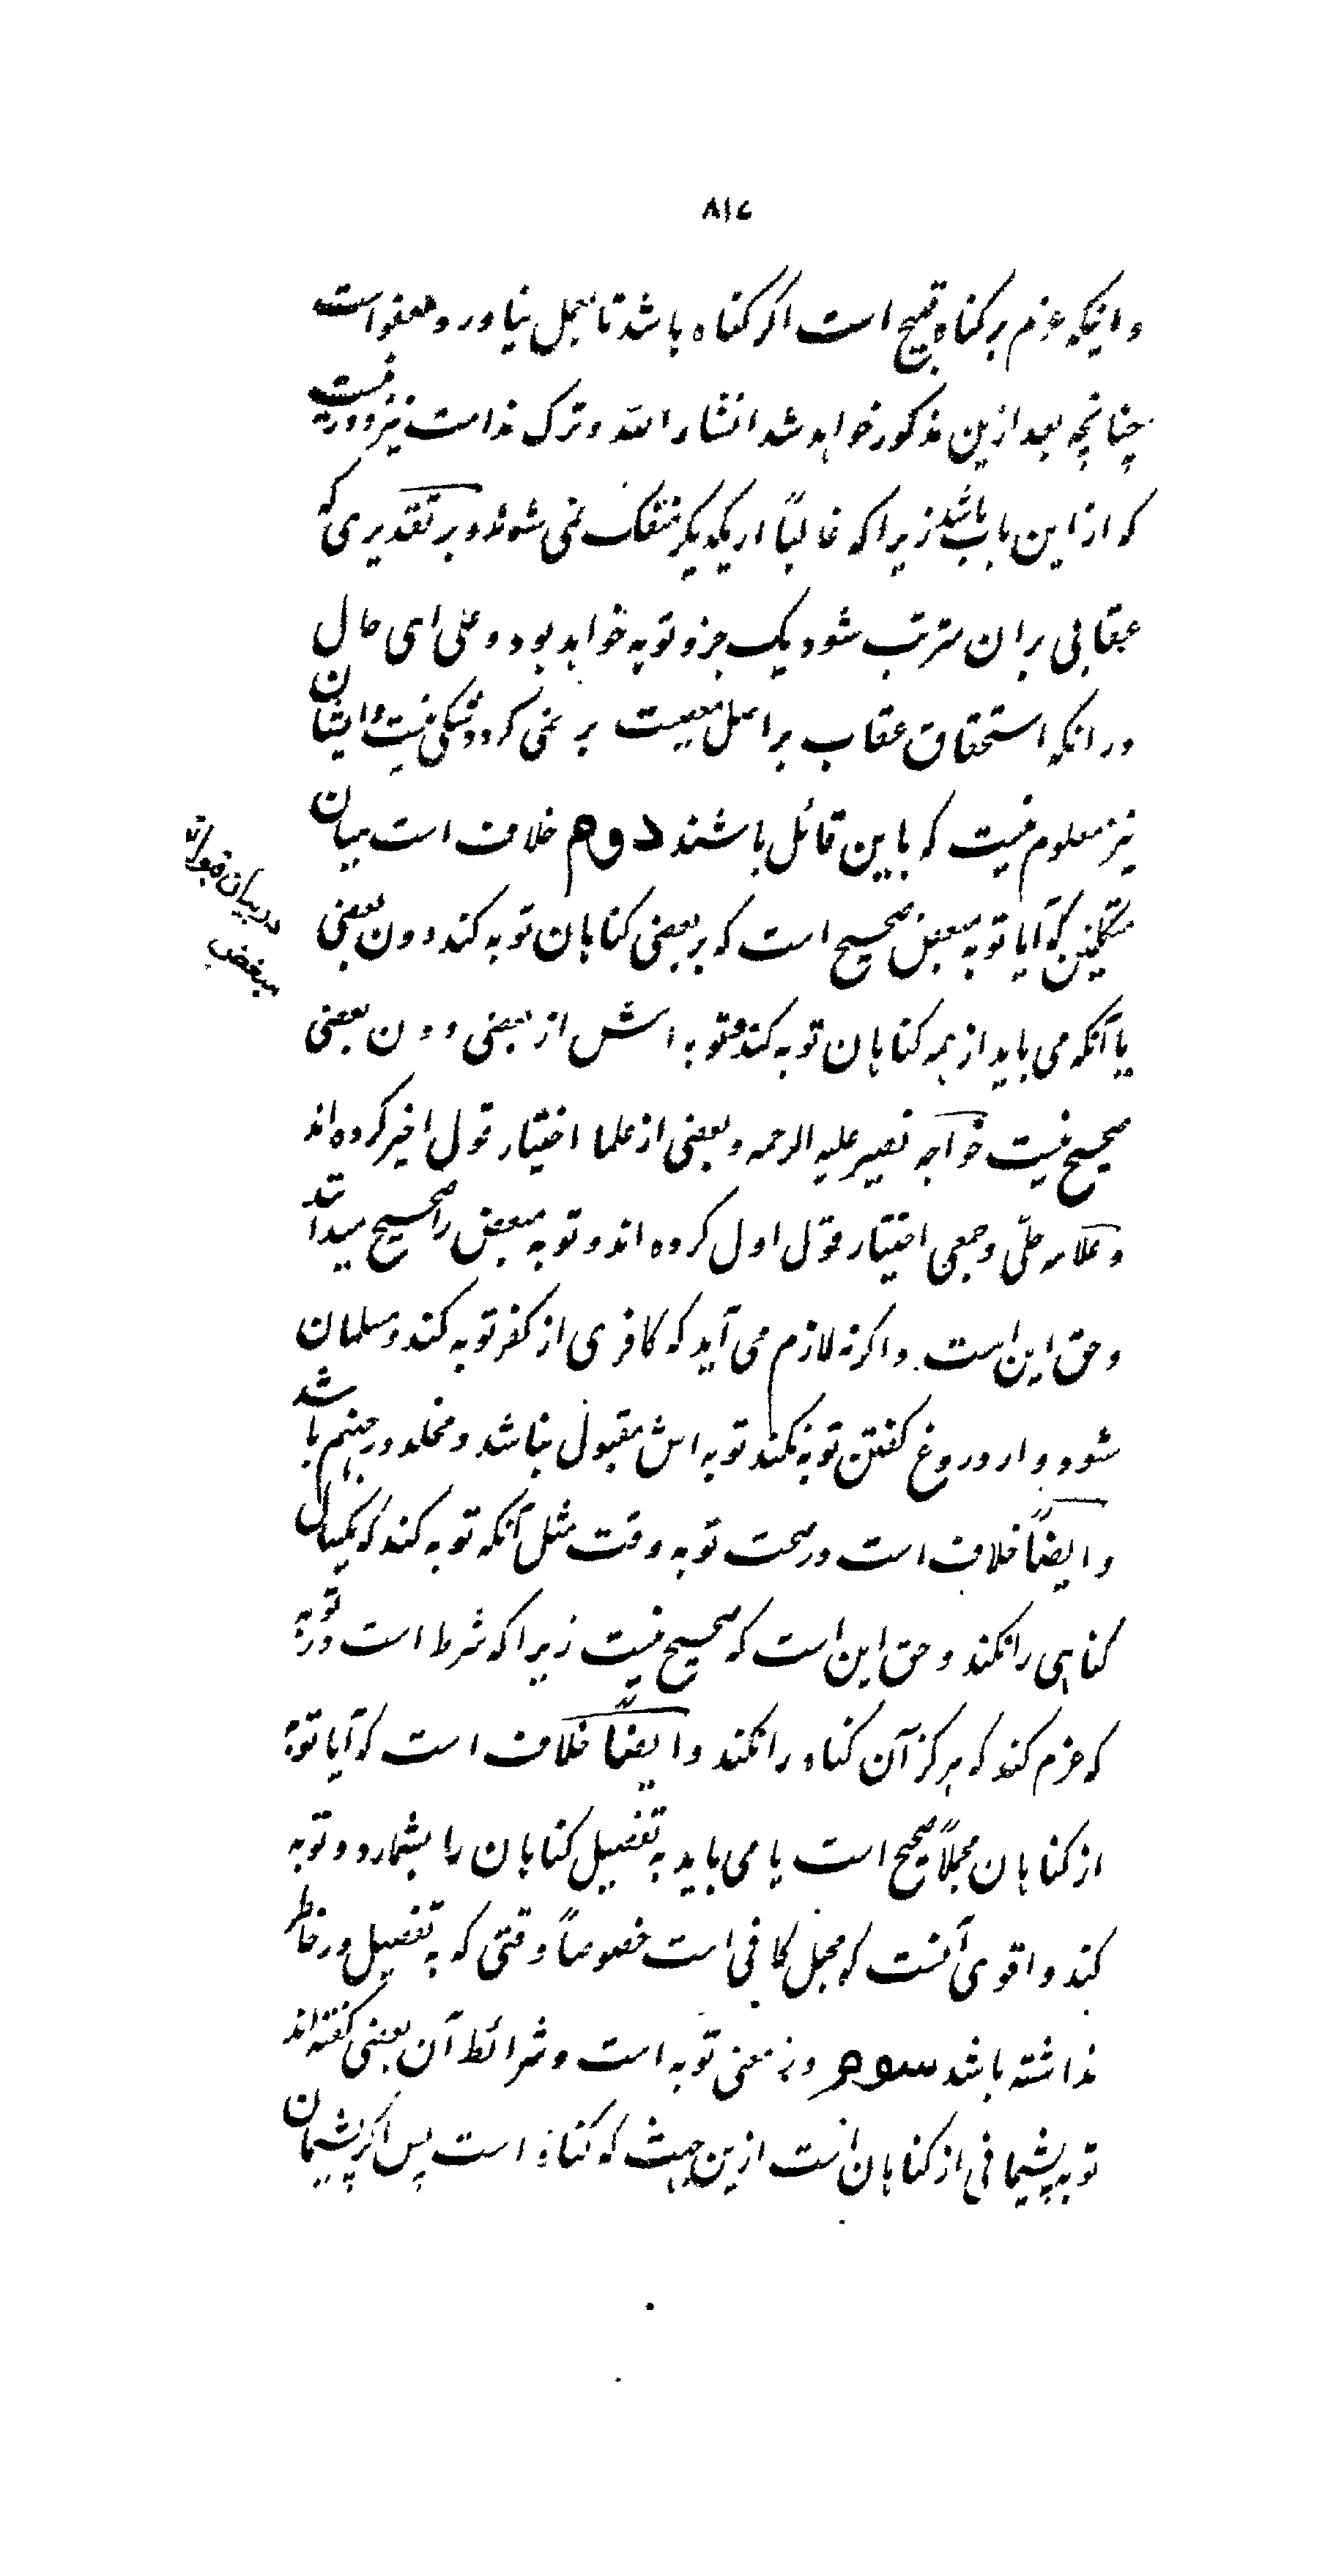 ۸۱۷
و اینکه عزم بر کناه قبیح است اکر کناه باشد تا بعمل نیاورد معفو است
چنانچه بعد ازین مذکور خواهد شد انشاء الله و ترک ندامت نیز دور نیست
که از این باب باشد زیرا که غالباً از یکدیکر منفک نمی شوند و بر تقدیری که
عقابی بر ان مترتب شود یک جزو توبه خواهد بود و علی ای حال
در انکه استحقاق عقاب بر اصل معصیت بر نمی کردد شکی نیست و ایشان
نیز معلوم نیست که باین قائل باشند دوم خلاف است میان
متکلمین که آیا توبه مبعض صحیح است که بر بعضی کناهان توبه کند دون بعضی
یا آنکه می باید از همه کناهان توبه کند و توبه اش از بعضی دون بعضی
صحیح نیست خواجه نصیر علیه الرحمه و بعضی از علما اختیار قول اخیر کرده اند
و علامه حلّی و جمعی اختیار قول اول کرده اند و توبه مبعض را صحیح میدانند
و حق این است و اکرنه لازم می آید که کافری از کفر توبه کند و مسلمان
شود و از دروغ کفتن توبه نکند توبه اش مقبول نباشد و مخلد در جهنم باشد
و ایضاً خلاف است در صحت توبه وقت مثل آنکه توبه کند که یکسال
کناهی را نکند و حق این است که صحیح نیست زیرا که شرط است در توبه
که عزم کند که هرکز آن کناه را نکند و ایضاً خلاف است که آیا توبه
از کناهان مجملاً صحیح است یا می باید به تفصیل کناهان را بشمارد و توبه
کند و اقوی آنست که مجمل کافی است خصوصاً وقتی که به تفصیل در خاطر
نداشته باشد سوم در معنی توبه است و شرائط آن بعضی کفته اند
توبه پشیمانی از کناهان است ازین جهت که کناه است پس اکر پشیمان
در بیان توبه
مبغض